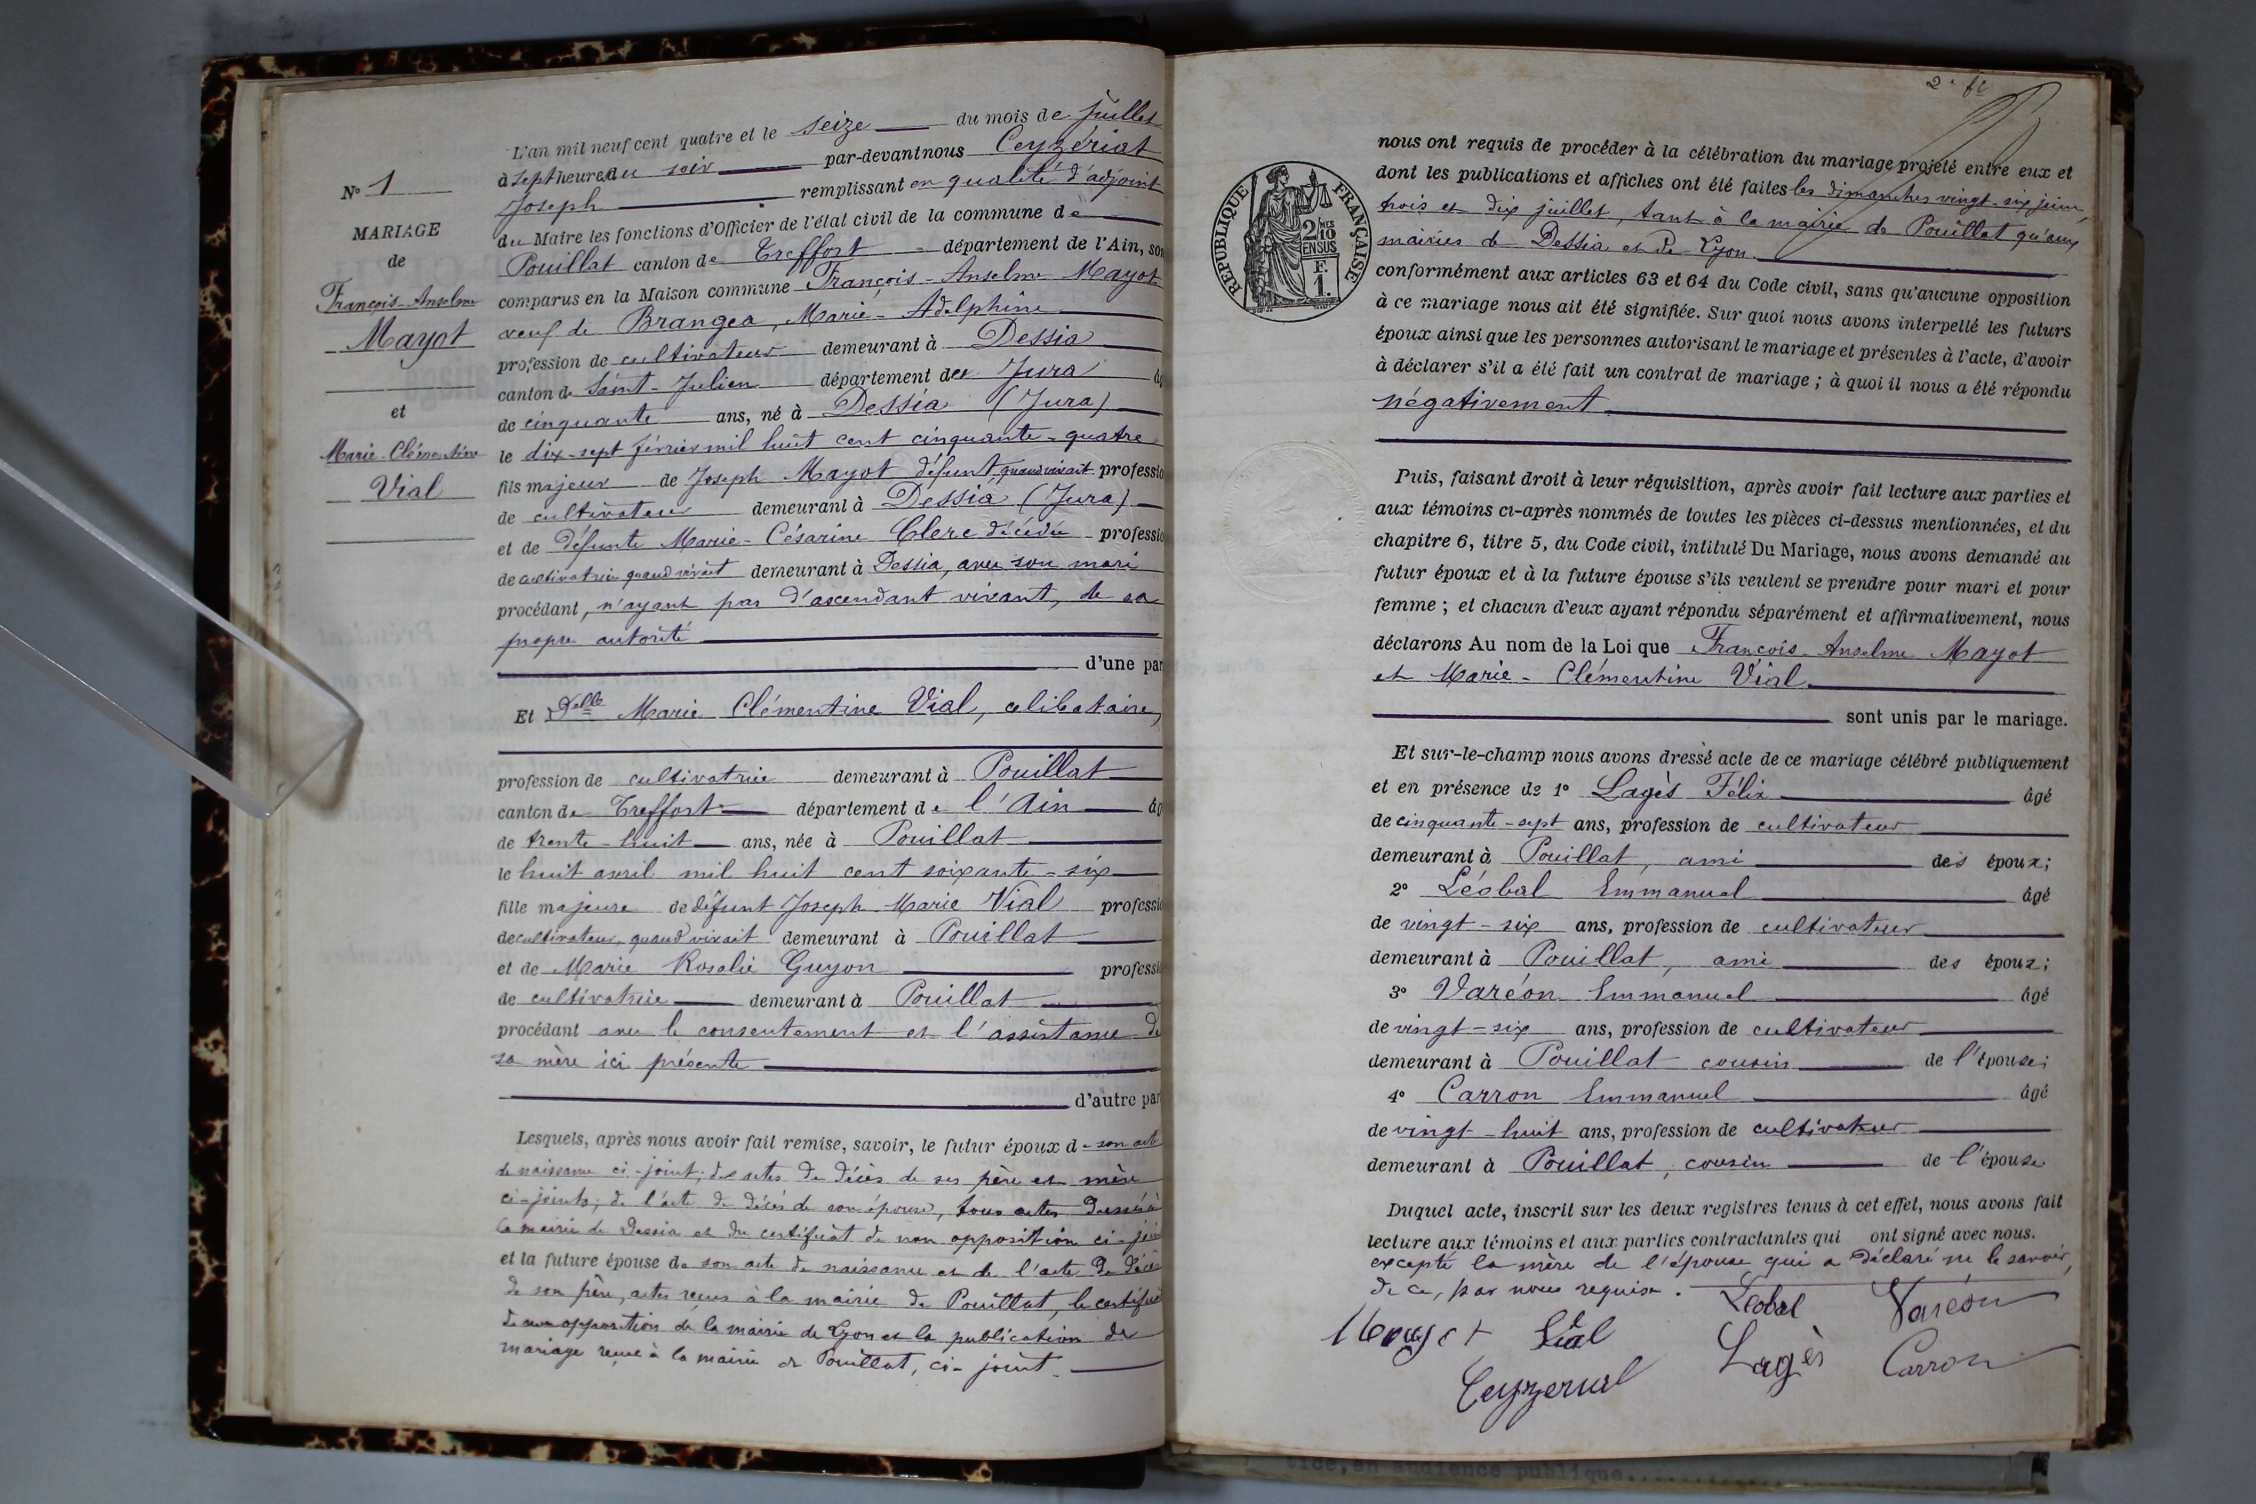 N° 1
MARIAGE
de
François-Anselme
Mayot
et
Marie-Clémentine
Vial
L'an mil neuf cent quatre et le seize du mois de juillet
à sept heures du soir par-devant nous Ceyzériat
Joseph remplissant en qualité d'adjoint
du Maire les fonctions d'Officier de l'état civil de la commune de
Pouillat canton de Treffort département de l'Ain, son
comparus en la Maison commune François-Anselme Mayot
veuf de Brangea, Marie-Adelphine
profession de cultivateur demeurant à Dessia
canton de Saint-Julien département du Jura âg
de cinquante ans, né à Dessia (Jura)
le dix-sept février mil huit cent cinquante-quatre
fils majeur de Joseph Mayot défunt quand vivait professio
de cultivateur demeurant à Dessia (Jura)
et de défunte Marie-Césarine Clerc décédée professio
de cultivatrice quand vivait demeurant à Dessia, avec son mari
procédant, n'ayant pas d'ascendant vivant, de sa
propre autorité
d'une par
Et Delle Marie Clémentine Vial, célibataire,
profession de cultivatrice demeurant à Pouillat
canton de Treffort département de l'Ain âg
de trente-huit ans, née à Pouillat
le huit avril mil huit cent soixante-six
fille majeure de défunt Joseph-Marie Vial professio
de cultivateur, quand vivait demeurant à Pouillat
et de Marie Rosalie Guyon professi
de cultivatrice demeurant à Pouillat
procédant avec le consentement et l'assistance de
sa mère ici présente
d'autre par
Lesquels, après nous avoir fait remise, savoir, le futur époux d son acte
de naissance ci-joint; des actes de décès de ses père et mère
ci-joints; de l'acte de décès de son épouse, tous actes dressés à
la mairie de Dessia et du certificat de non opposition ci-joint
et la future épouse de son acte de naissance et de l'acte de décès
de son père, actes reçus à la mairie de Pouillat, le certificat
de non opposition de la mairie de Lyon et la publication de
mariage reçue à la mairie de Pouillat, ci-joint.
2e
REPUBLIQUE FRANÇAISE
2/10 EN SUS
F.
1.
nous ont requis de procéder à la célébration du mariage projeté entre eux et
dont les publications et affiches ont été faites les dimanches vingt-six juin,
trois et dix juillet, tant à la mairie de Pouillat qu'aux
mairies de Dessia et de Lyon
conformément aux articles 63 et 64 du Code civil, sans qu'aucune opposition
à ce mariage nous ait été signifiée. Sur quoi nous avons interpellé les futurs
époux ainsi que les personnes autorisant le mariage et présentes à l'acte, d'avoir
à déclarer s'il a été fait un contrat de mariage; à quoi il nous a été répondu
négativement
Puis, faisant droit à leur réquisition, après avoir fait lecture aux parties et
aux témoins ci-après nommés de toutes les pièces ci-dessus mentionnées, et du
chapitre 6, titre 5, du Code civil, intitulé Du Mariage, nous avons demandé au
futur époux et à la future épouse s'ils veulent se prendre pour mari et pour
femme; et chacun d'eux ayant répondu séparément et affirmativement, nous
déclarons Au nom de la Loi que François Anselme Mayot
et Marie-Clémentine Vial
sont unis par le mariage.
Et sur-le-champ nous avons dressé acte de ce mariage célébré publiquement
et en présence de 1° Lagès Félix âgé
de cinquante-sept ans, profession de cultivateur
demeurant à Pouillat, ami des époux;
2° Léobal Emmanuel âgé
de vingt-six ans, profession de cultivateur
demeurant à Pouillat, ami des époux;
3° Varéon Emmanuel âgé
de vingt-six ans, profession de cultivateur
demeurant à Pouillat cousin de l'épouse;
4° Carron Emmanuel âgé
de vingt-huit ans, profession de cultivateur
demeurant à Pouillat, cousin de l'épouse
Duquel acte, inscrit sur les deux registres tenus à cet effet, nous avons fait
lecture aux témoins et aux parties contractantes qui ont signé avec nous.
excepté la mère de l'épouse qui a déclaré ne le savoir,
de ce, par nous requise.
Léobal Varéon
Mayot Vial
Lagès Carron
Ceyzeriat
tice, en audience publique